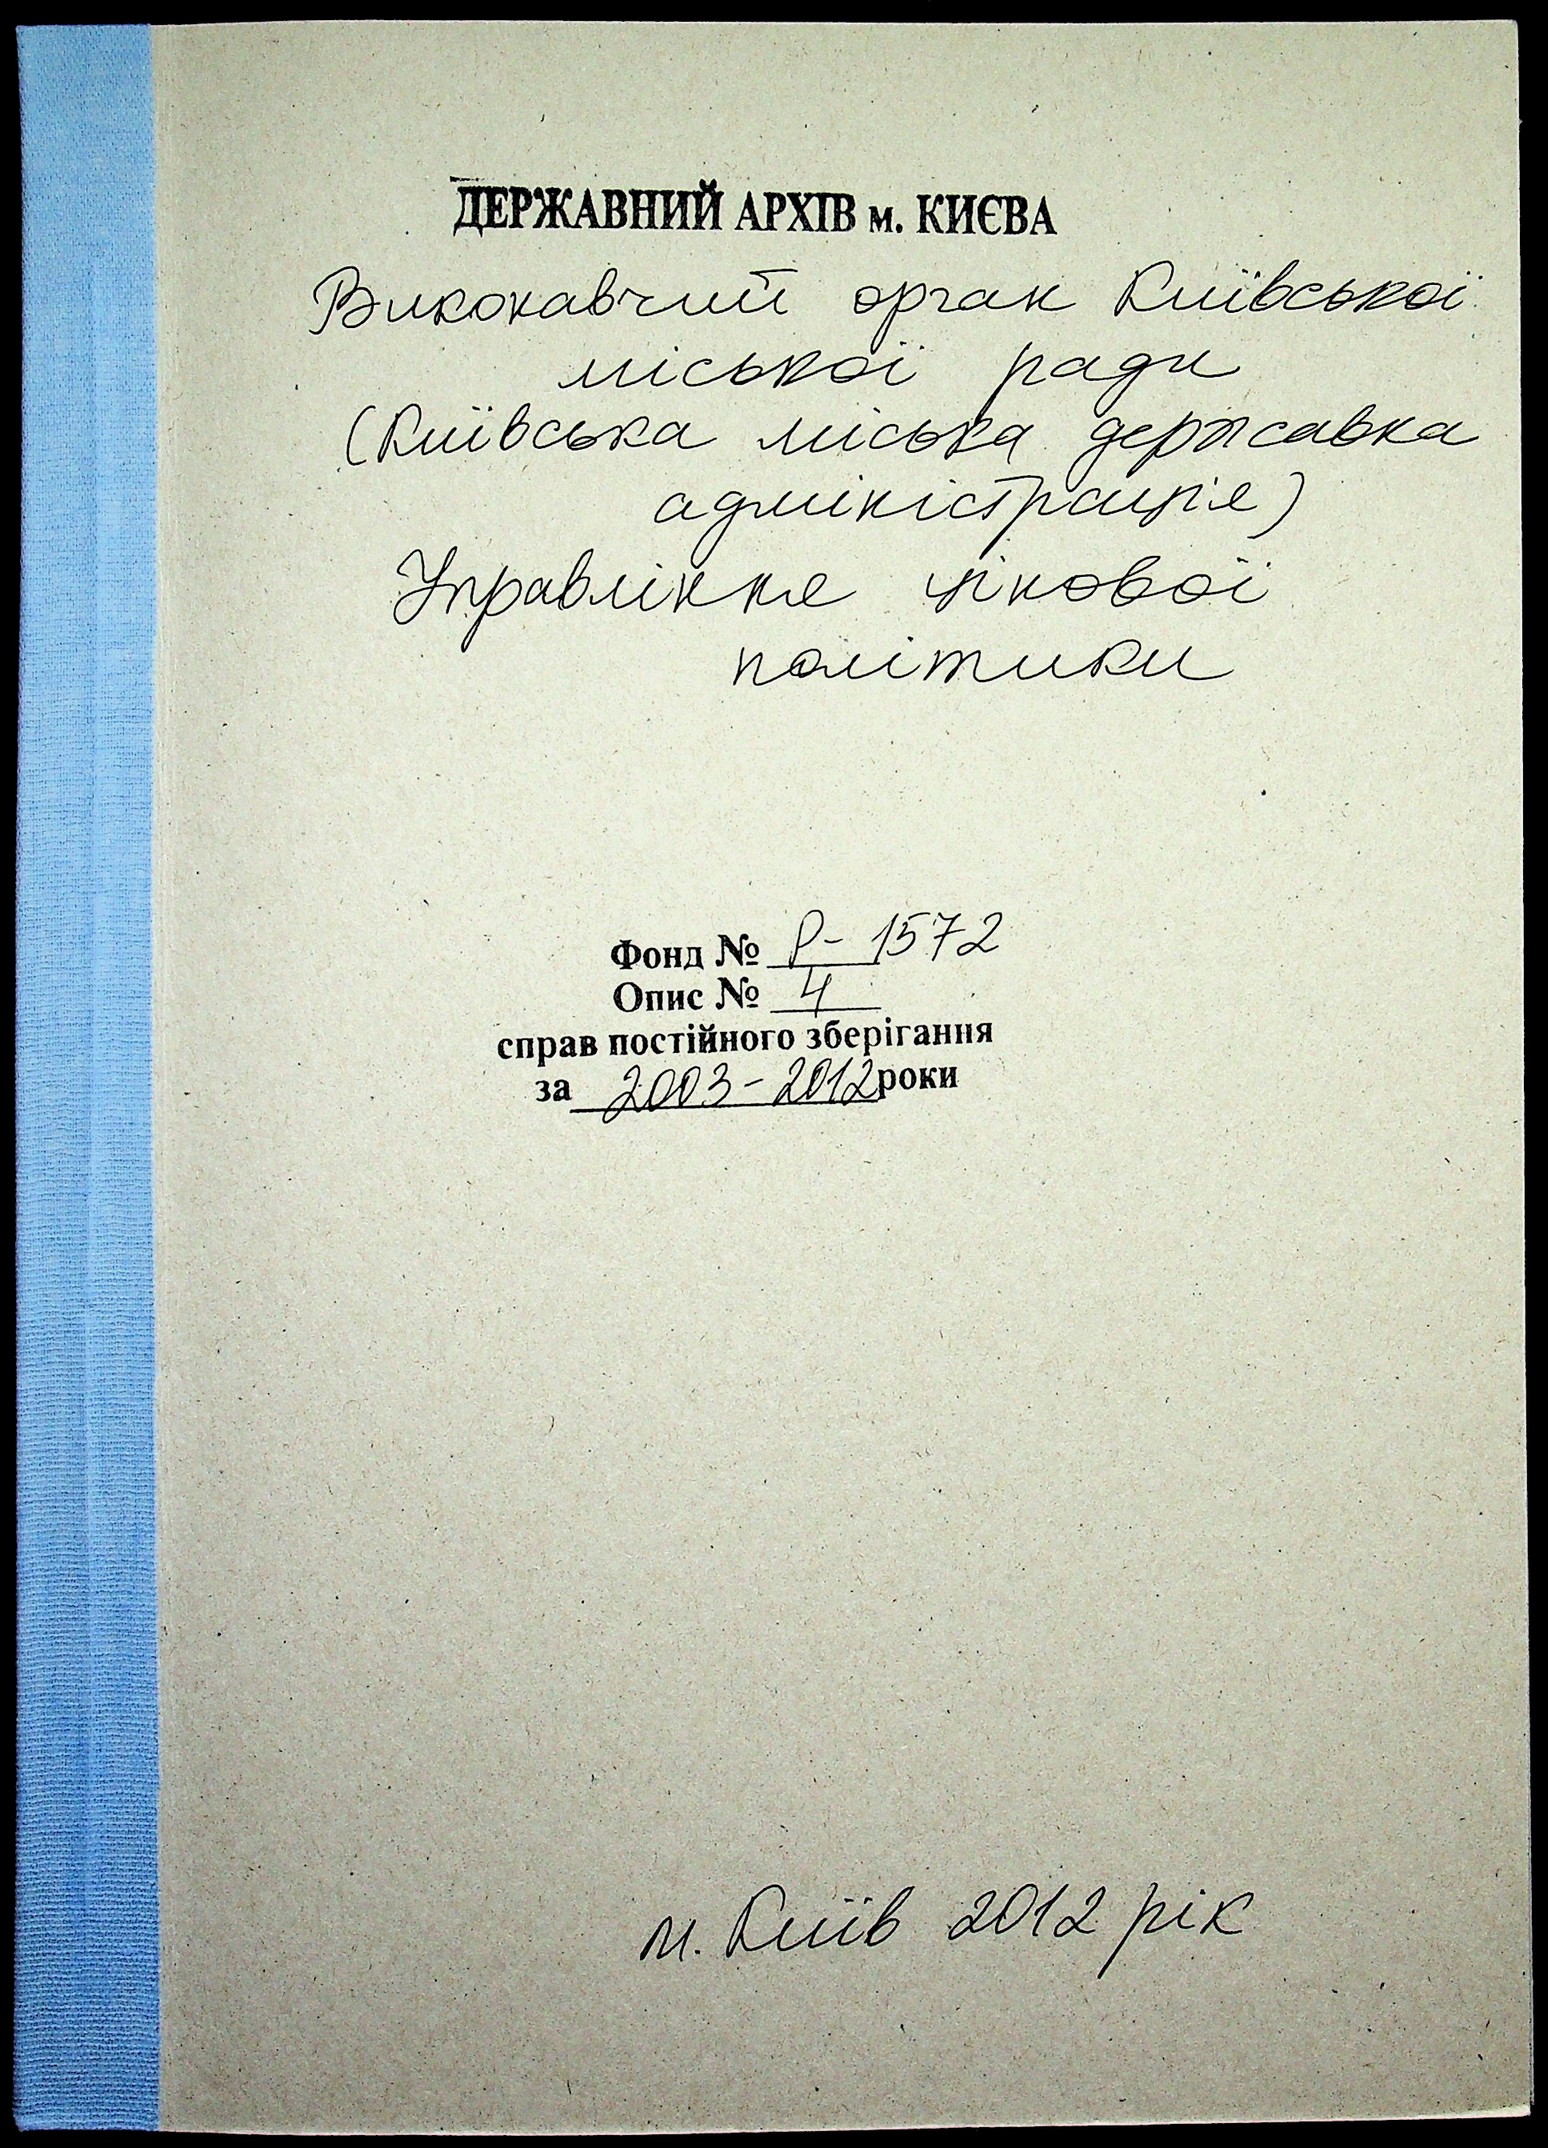 ДЕРЖАВНИЙ АРХІВ м. КИЄВА
Виконавчий орган Київської
міської ради
(Київська міська державна
адміністрація)
Управління цінової
політики
Фонд № Р- 1572
Опис № 4
справ постійного зберігання
за 2003-2012 роки
м. Київ 2012 рік